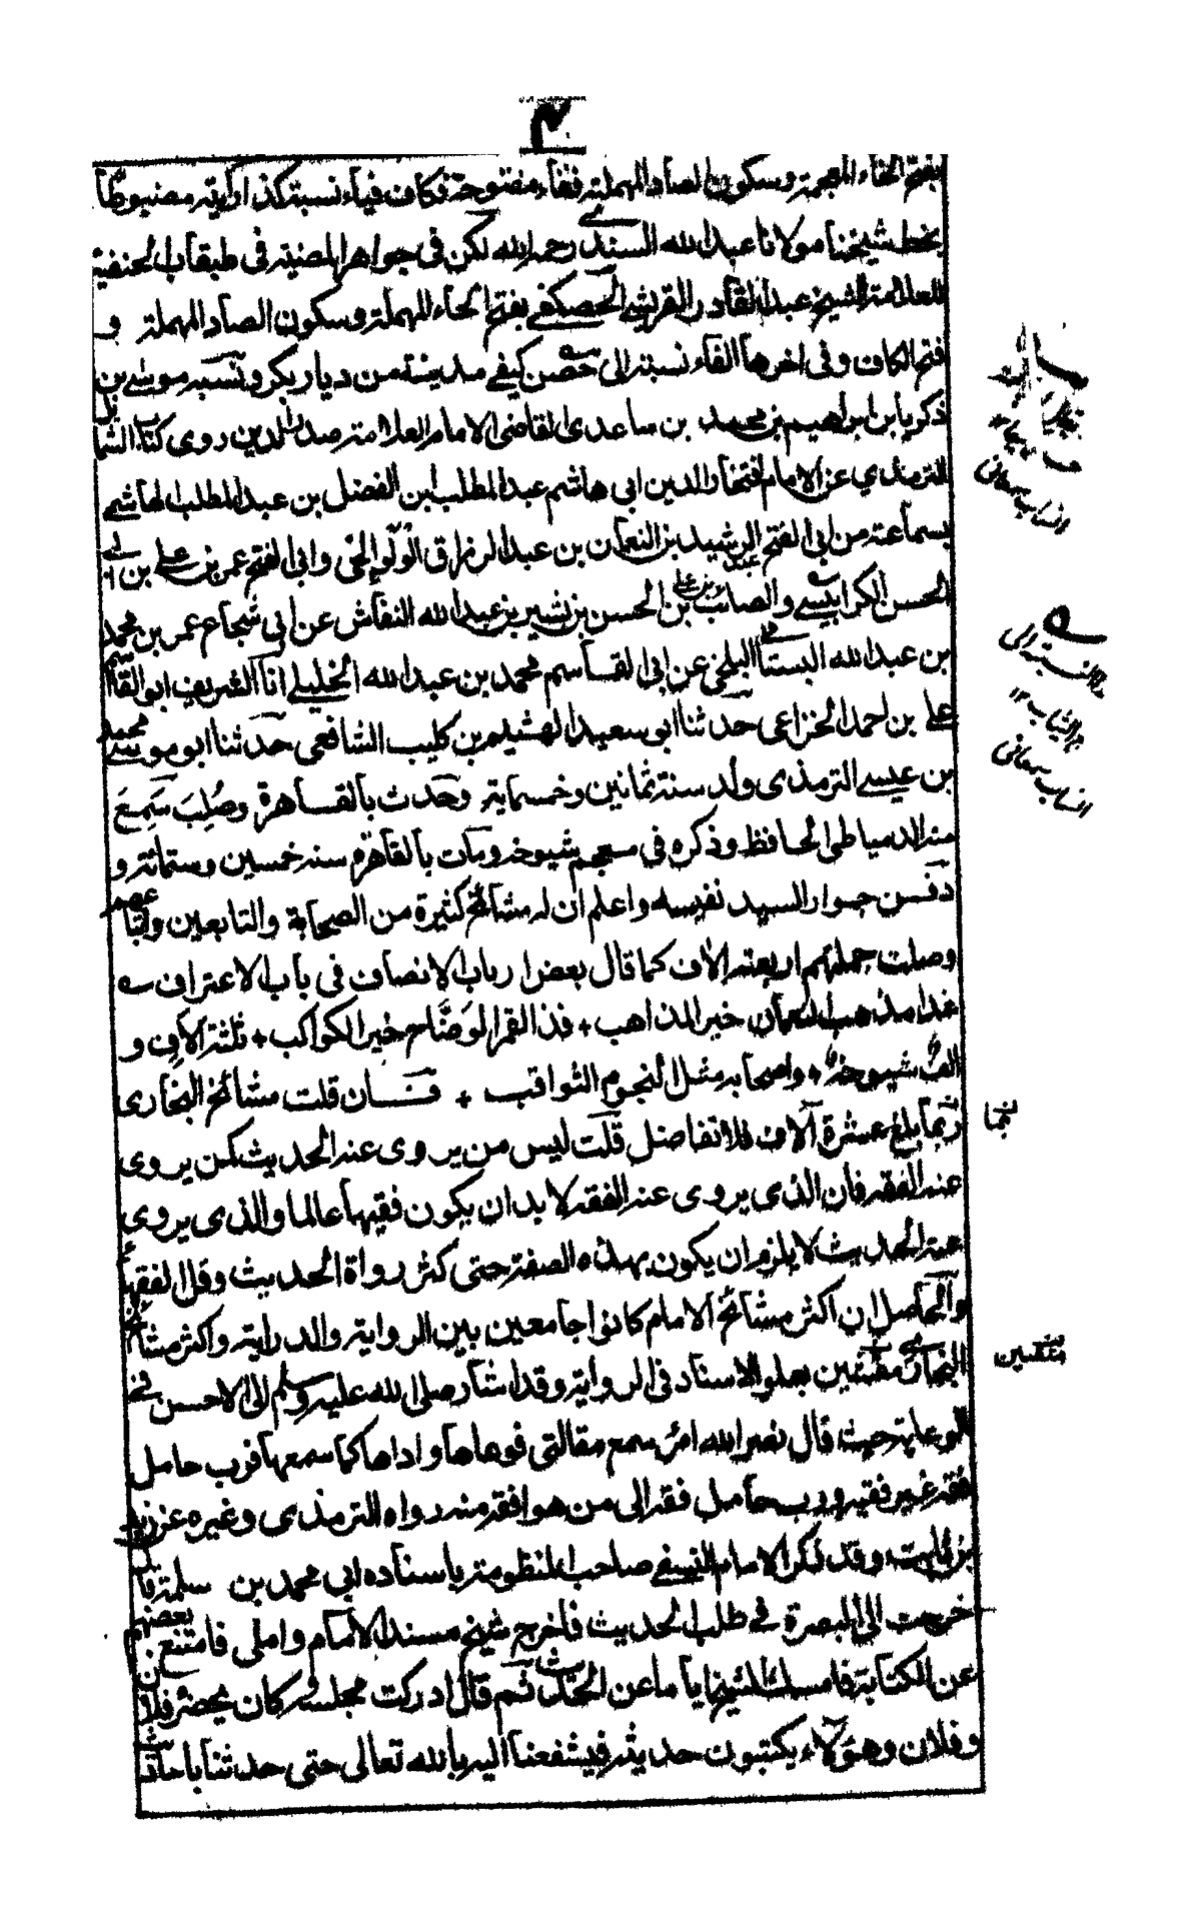 ٣
بفتح الخاء المعجمة وسكون الصاد المهملة ففاء مفتوحة وكاف فياء نسبة كذا رأيته مضبوطا
بخط شيخنا مولانا عبد الله السندي رحمه الله لكن فى جواهر المضيئة فى طبقات الحنفية
للعلامة الشيخ عبد القادر القرشي الحصكفي بفتح الحاء المهملة وسكون الصاد المهملة و
فتح الكاف وفى اخرها الفاء نسبة الى حصن كيفي مدينة من ديار بكر ونسبه موسى بن
ذكريا بن ابراهيم بن محمد بن ساعدى القاضى الامام العلامة صدر الدين روى كتاب الشمائل
للترمذي عن الامام افتخار الدين ابى هاشم عبد المطلب ابن الفضل بن عبد المطلب الهاشمي
بسماعته من ابى الفتح الرشيد بن النعمان بن عبد الرزاق الولوالجى وابى الفتح عمر بن على بن ابى
الحسن الكرابيسي والصائب بن على بن الحسن بن بشير بن عبد الله النقاش عن ابى شجاع عمر بن محمد
بن عبد الله البستامى البلخى عن ابى القاسم محمد بن عبد الله الخليلي انا الشريف ابو القاسم
على بن احمد الخزاعى حدثنا ابو سعيد الهشيم بن كليب الشافعى حدثنا ابو موسى محمد
بن عيسى الترمذى ولد سنة ثمانين وخمسماية وحدث بالقاهرة وصُلِبَ سَمِعَ
منه الدمياطى الحافظ وذكره فى معجم شيوخه ومات بالقاهرة سنه خمسين وستمائة و
دفن جوار السيد نفيسه واعلم ان له مشائخ كثيرة من الصحابة والتابعين واتباعهم
وصلت جملتهم اربعة الاف كما قال بعض ارباب الانصاف فى باب الاعتراف ؎
غدا مذهب النعمان خير المذاهب + فذا القمر الوضّاح خير الكواكب + ثلثة الاف و
الف شيوخه + واصحابه مثل النجوم الثواقب + فان قلت مشائخ البخارى
ربما بلغ عشرة آلاف فلا تفاضل قلت ليس من يروى عنه الحديث كمن يروى
عنه الفقه فان الذى يروى عنه الفقه لا بد ان يكون فقيها عالما والذى يروى
عنه الحديث لا يلزم ان يكون بهذه الصفة حتى كثر رواة الحديث وقل الفقهاء
والحاصل ان اكثر مشائخ الامام كانوا جامعين بين الرواية والدراية واكثر مشائخ
البخارى مقتنين بعلو الاسناد فى الرواية وقد اشار صلى الله عليه وسلم الى الاحسن فى
الوعاية حيث قال نضر الله امرء سمع مقالتى فوعاها واداها كما سمعها فرب حامل
فقه غير فقيه ورب حامل فقه الى من هو افقه منه رواه الترمذى وغيره عن زيد
بن ثابت وقد ذكر الامام النسفي صاحب المنظومة باسناده ابى محمد بن سلمة قال
خرجت الى البصرة في طلب الحديث فاخرج شيخ مسند الامام واملى فامتنع بعضهم
عن الكتابة فامسك الشيخ اياما عن الحديث ثم قال ادركت مجلسه وكان يحضره فلان
وفلان وهؤلاء يكتبون حديثه فيشفعنا اليه بالله تعالى حتى حدثنا باحاديث
انساب سمعانى
انساب سمعانى
متقنين